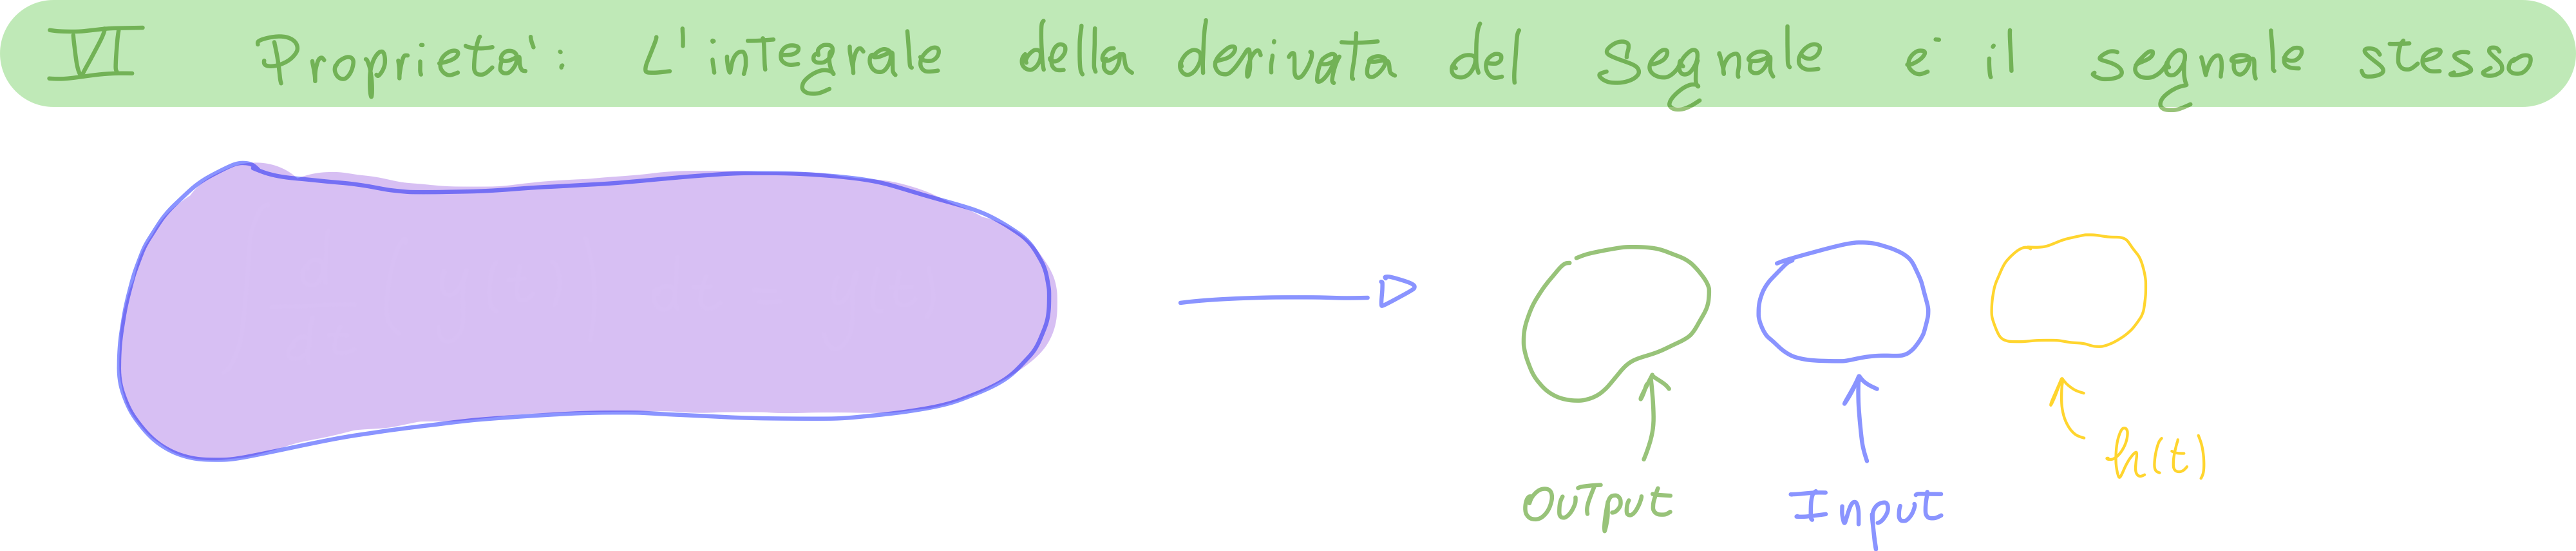 VI Proprieta': L'integrale della derivata del Segnale e' il segnale stesso
h(t)
OUTput Input